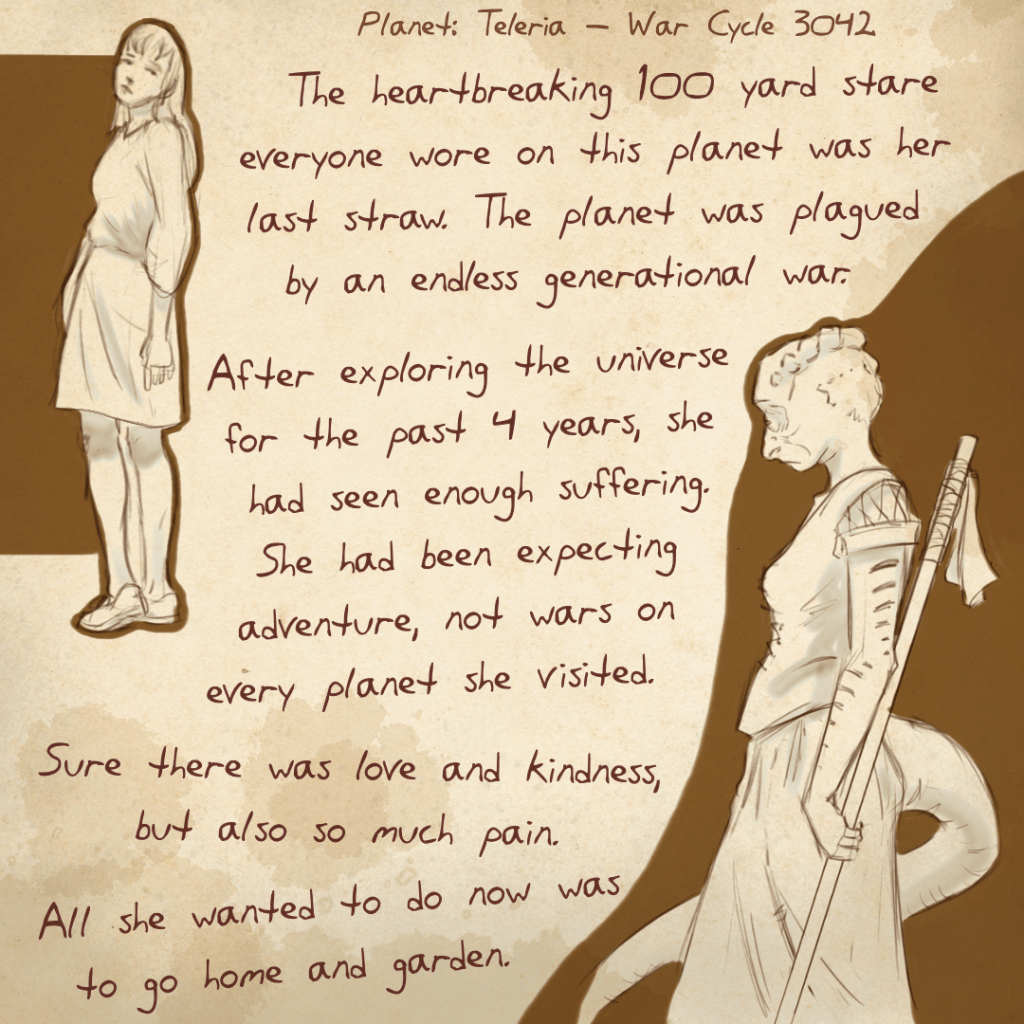 Planet: Teleria – War Cycle 3042
The heartbreaking 100 yard stare
everyone wore on this planet was her
last straw. The planet was plagued
by an endless generational war.
After exploring the universe
for the past 4 years, she
had seen enough suffering.
She had been expecting
adventure, not wars on
every planet she visited.
Sure there was love and kindness,
but also so much pain.
All she wanted to do now was
to go home and garden.